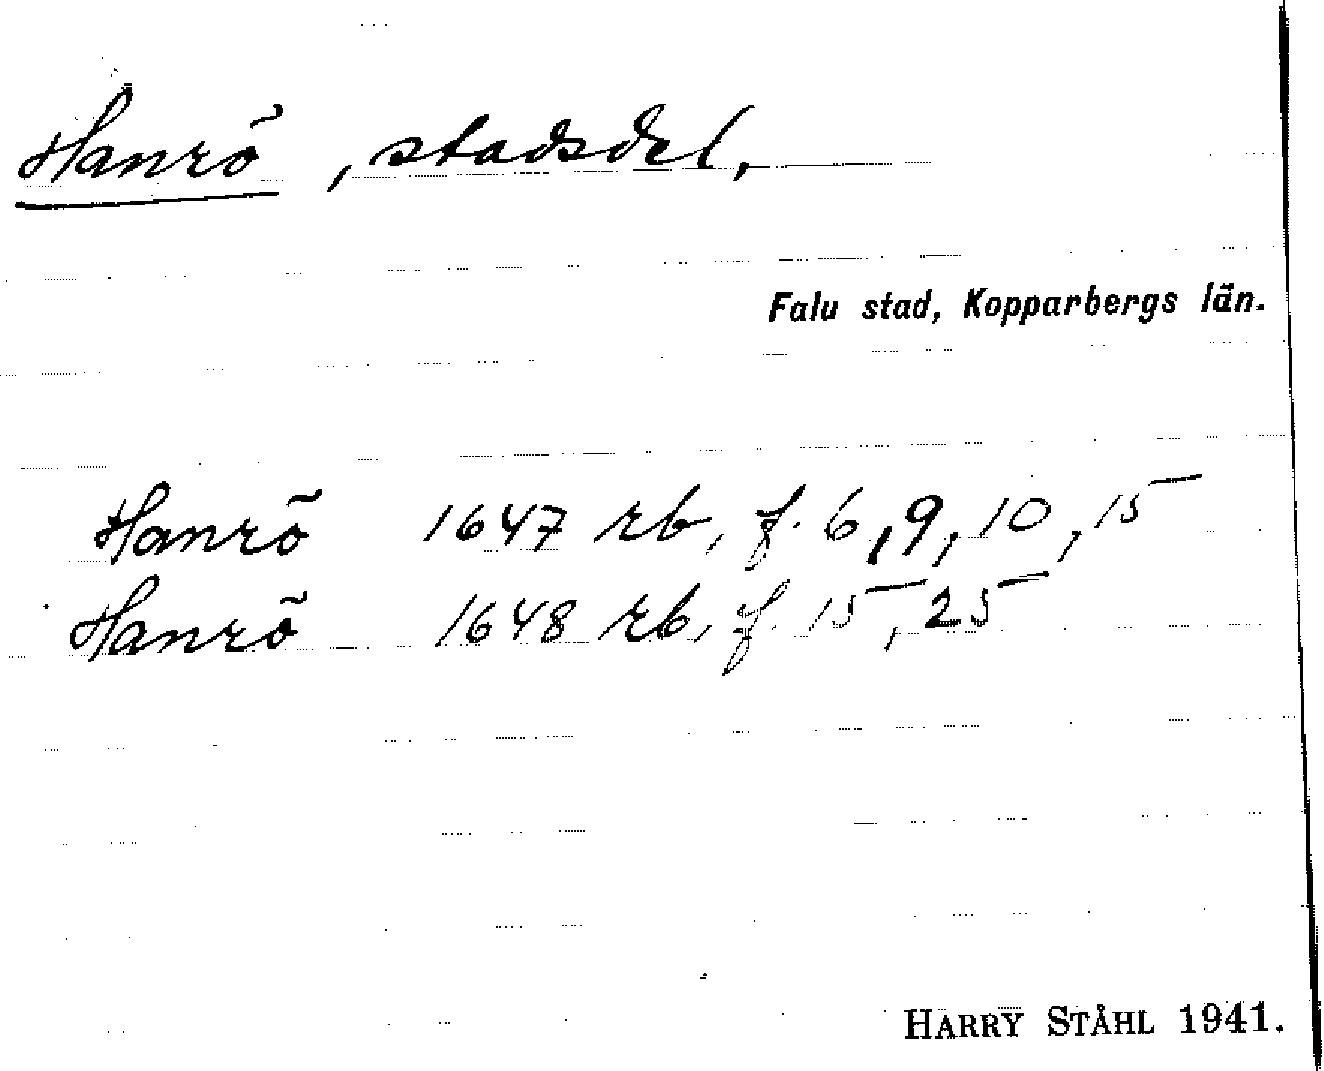 Hanrö, stadsdel,
Falu stad, Kopparbergs län.
Hanrö 1647 rb, f. 6, 9, 10, 15
Hanrö 1648 rb, f. 15, 25
HARRY STÅHL 1941.